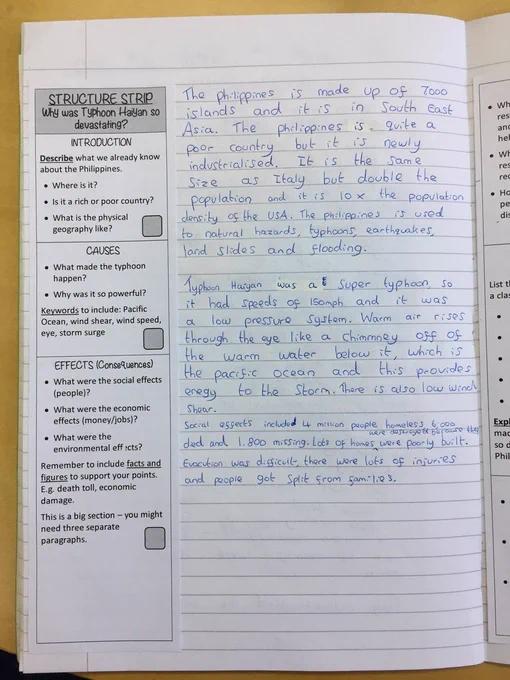 STRUCTURE STRIP
Why was Typhoon Haiyan so
devastating?
INTRODUCTION
Describe what we already know
about the Philippines.
• Where is it?
• Is it a rich or poor country?
• What is the physical
geography like?
CAUSES
• What made the typhoon
happen?
• Why was it so powerful?
Keywords to include: Pacific
Ocean, wind shear, wind speed,
eye, storm surge
EFFECTS (Consequences)
• What were the social effects
(people)?
• What were the economic
effects (money/jobs)?
• What were the
environmental effects?
Remember to include facts and
figures to support your points.
E.g. death toll, economic
damage.
This is a big section – you might
need three separate
paragraphs.
The philippines is made up of 7000
islands and it is in South East
Asia. The philippines is quite a
poor country but it is newly
industrialised. It is the same
size as Italy but double the
population and it is 10x the population
density of the USA. The philippines is used
to natural hazards, typhoons, earthquakes,
land slides and flooding.
Typhoon Haiyan was a super typhoon, so
it had speeds of 150mph and it was
a low pressure system. Warm air rises
through the eye like a chimmney off of
the warm water below it, which is
the pacific ocean and this provides
enegy to the storm. There is also low wind
shear.
Social effects included 4 million people homeless 6,000
died and 1.800 missing. Lots of homes were destroyed because they were poorly built.
Evacution was difficult, there were lots of injuries
and people got split from families.
• Wh
res
an
he
• Wh
res
re
• Ho
pe
dis
List t
a cla
•
•
•
•
Expl
ma
so d
Phil
•
•
•